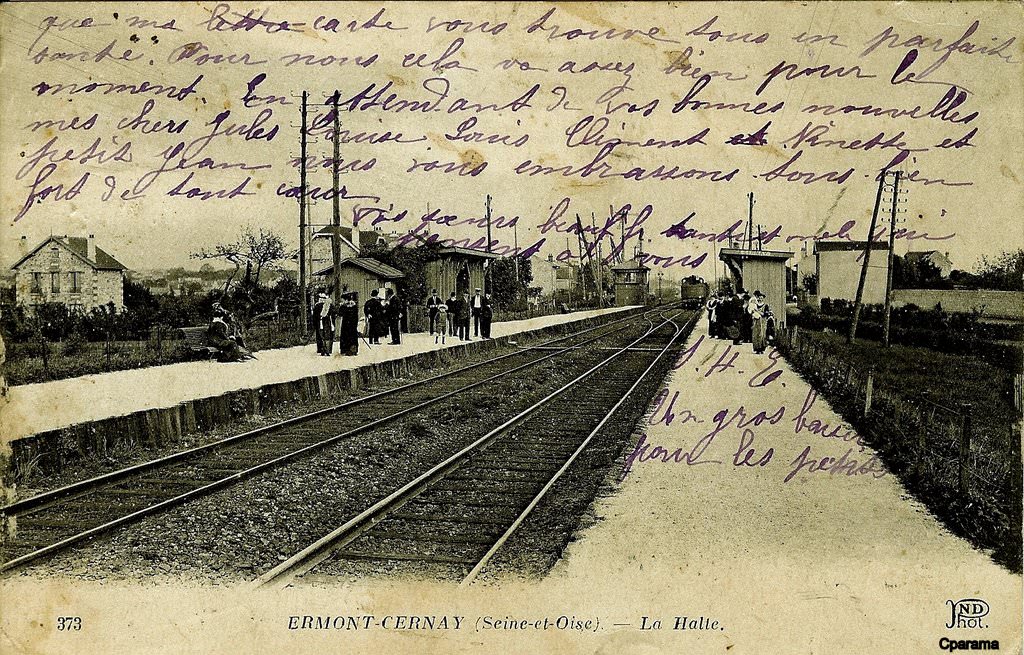 que ma lettre carte vous trouve tous en parfaite
santé. Pour nous cela va assez bien pour le
moment. En attendant de vos bonnes nouvelles
mes chers Jules Louise Louis Clément et Ninette et
petit Jean nous vous embrassons tous bien
fort de tout cœur
Vos sœurs beauf. tante et oncle qui
pensent à vous
J. H. E.
Un gros baiser
pour les petits
373
ERMONT-CERNAY (Seine-et-Oise). — La Halte.
ND
Phot.
Cparama